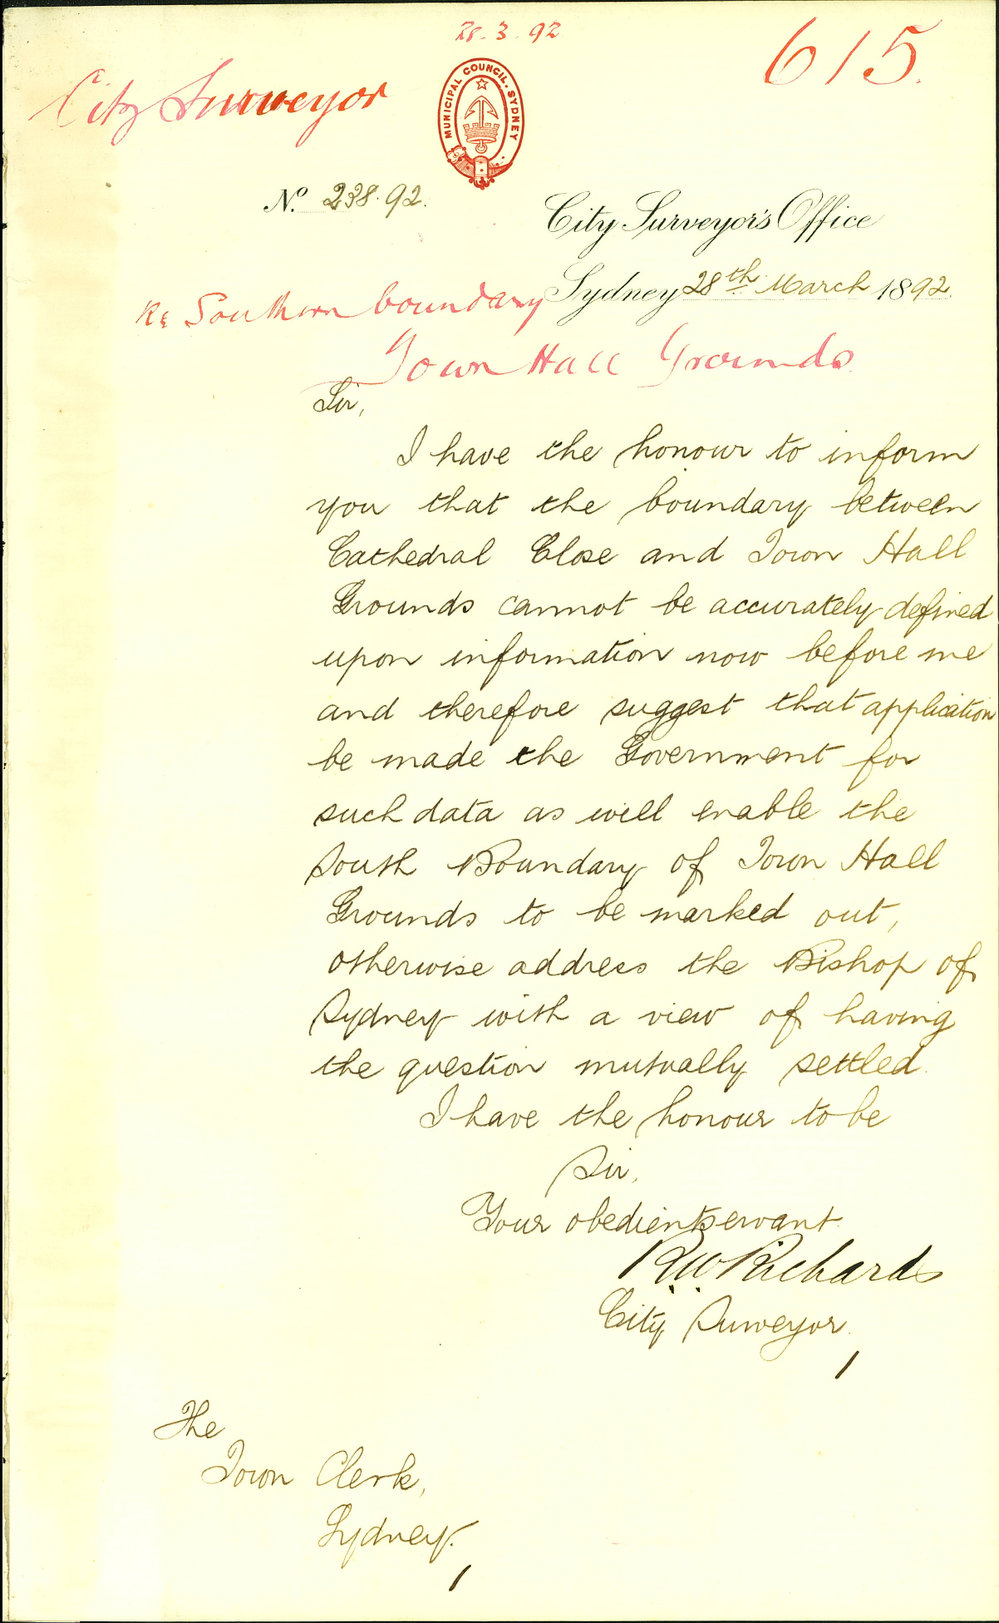 28.3.92
615.
City Surveyor
MUNICIPAL COUNCIL. SYDNEY
No. 238.92.
City Surveyor's Office
Sydney 28th March 1892.
Re Southern boundary
Town Hall Grounds
Sir,
I have the honour to inform
you that the boundary between
Cathedral Close and Town Hall
Grounds cannot be accurately defined
upon information now before me
and therefore suggest that application
be made the Government for
such data as well enable the
South Boundary of Town Hall
Grounds to be marked out,
otherwise address the Bishop of
Sydney with a view of having
the question mutually settled.
I have the honour to be
Sir,
Your obedient servant
R W Richards
City Surveyor.
The
Town Clerk,
Sydney.